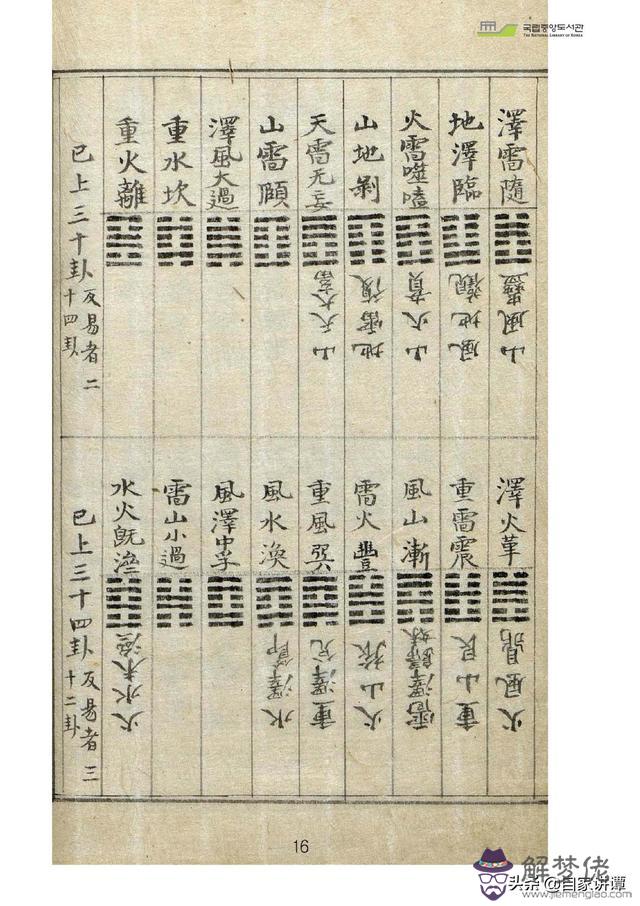 국립중앙도서관
THE NATIONAL LIBRARY OF KOREA
澤雷隨
山風蠱
地澤臨
風地觀
火雷噬嗑
山火賁
山地剝
地雷復
天雷无妄
山天大畜
山雷頤
澤風大過
重水坎
重火離
已上三十卦
反易者二
十四卦
澤火革
火風鼎
重雷震
重山艮
風山漸
雷澤歸妹
雷火豐
火山旅
重風巽
重澤兌
風水渙
水澤節
風澤中孚
雷山小過
水火既濟
火水未濟
已上三十四卦
反易者三
十二卦
16
解梦佬
头条 @自家讲谭
www.jiemenglao.com